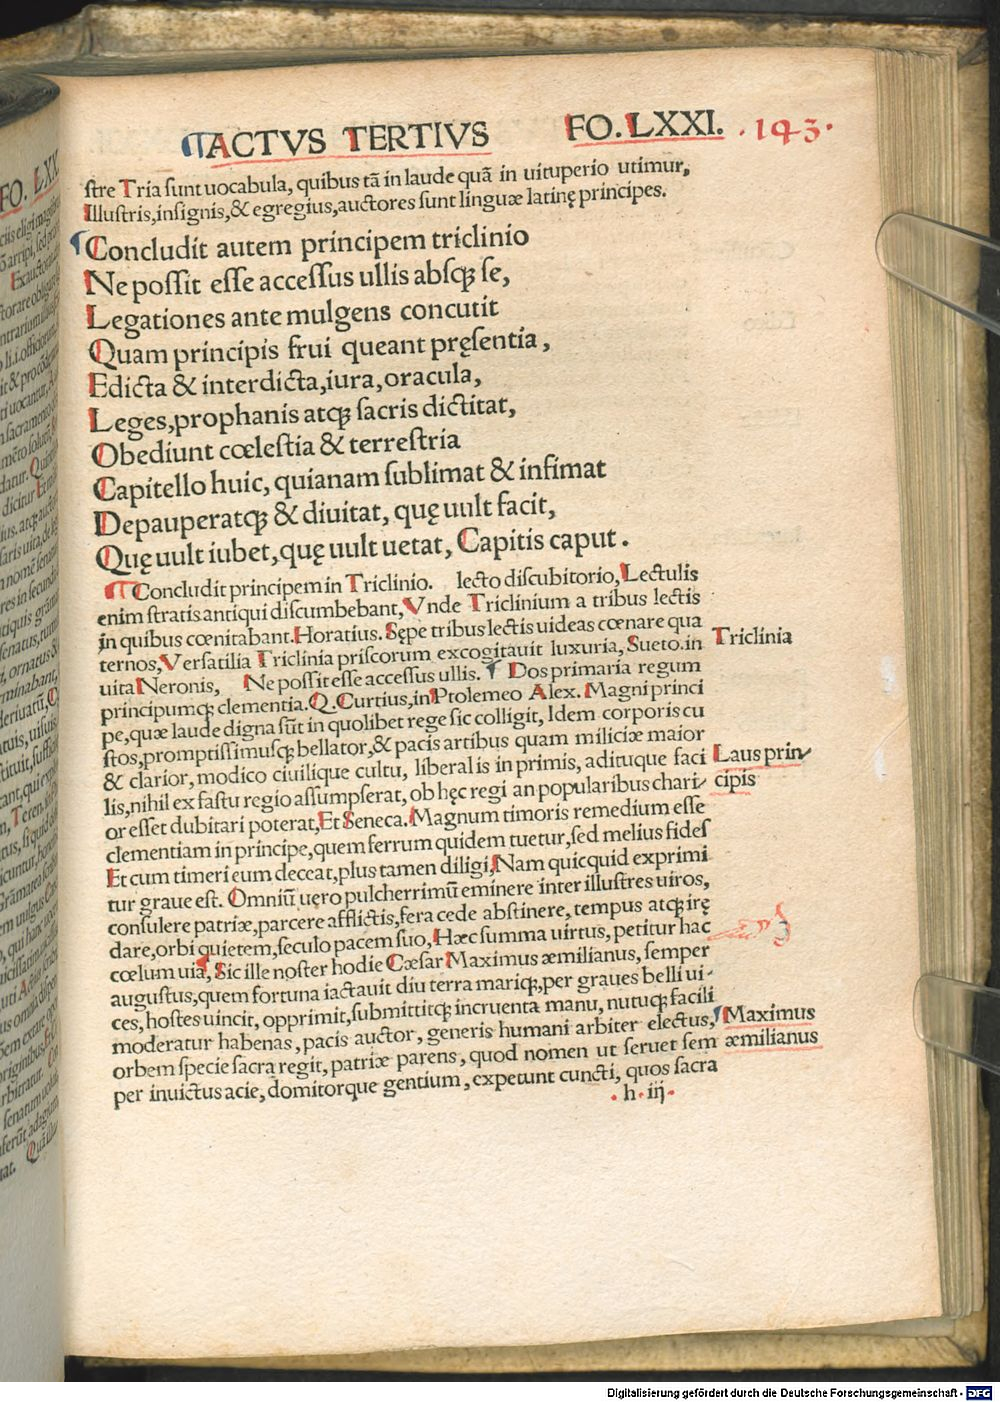 ACTVS TERTIVS FO. LXXI. .143.
ſtre Tria ſunt uocabula, quibus tã in laude quã in uituperio utimur,
Illuſtris, inſignis, & egregius, auctores ſunt linguæ latinę principes.
¶Concludit autem principem triclinio
Ne poſſit eſſe acceſſus ullis abſqꝫ ſe,
Legationes ante mulgens concutit
Quam principis frui queant pręſentia,
Edicta & interdicta, iura, oracula,
Leges, prophanis atqꝫ ſacris dictitat,
Obediunt cœleſtia & terreſtria
Capitello huic, quianam ſublimat & infimat
Depauperatqꝫ & diuitat, quę uult facit,
Quę uult iubet, quę uult uetat, Capitis caput.
¶Concludit principem in Triclinio. lecto diſcubitorio, Lectulis
enim ſtratis antiqui diſcumbebant, Vnde Triclinium a tribus lectis
in quibus cœnitabant. Horatius. Sępe tribus lectis uideas cœnare qua
ternos, Verſatilia Triclinia priſcorum excogitauit luxuria, Sueto. in
Triclinia
uita Neronis, Ne poſſit eſſe acceſſus ullis. ¶ Dos primaria regum
principumqꝫ clementia. Q. Curtius, in Ptolemeo Alex. Magni princi
pe, quæ laude digna ſũt in quolibet rege ſic colligit, Idem corporis cu
ſtos, promptiſſimuſqꝫ bellator, & pacis artibus quam miliciæ maior
& clarior, modico ciuilique cultu, liberalis in primis, adituque faci
Laus prin
lis, nihil ex faſtu regio aſſumpſerat, ob hęc regi an popularibus chari
cipis
or eſſet dubitari poterat, Et Seneca. Magnum timoris remedium eſſe
clementiam in principe, quem ferrum quidem tuetur, ſed melius fides
Et cum timeri eum deceat, plus tamen diligi, Nam quicquid exprimi
tur graue eſt. Omniũ uero pulcherrimũ eminere inter illuſtres uiros,
conſulere patriæ, parcere afflictis, fera cede abſtinere, tempus atqꝫ irę
dare, orbi quietem, ſeculo pacem ſuo, Hæc ſumma uirtus, petitur hac
cœlum uia, Sic ille noſter hodie Cæſar Maximus æmilianus, ſemper
auguſtus, quem fortuna iactauit diu terra mariqꝫ, per graues belli ui-
ces, hoſtes uincit, opprimit, ſubmittitqꝫ incruenta manu, nutuqꝫ facili
moderatur habenas, pacis auctor, generis humani arbiter electus,
Maximus
orbem ſpecie ſacra regit, patriæ parens, quod nomen ut ſeruet ſem
æmilianus
per inuictus acie, domitorque gentium, expetunt cuncti, quos ſacra
.h.iij.
Digitalisierung gefördert durch die Deutsche Forschungsgemeinschaft - DFG